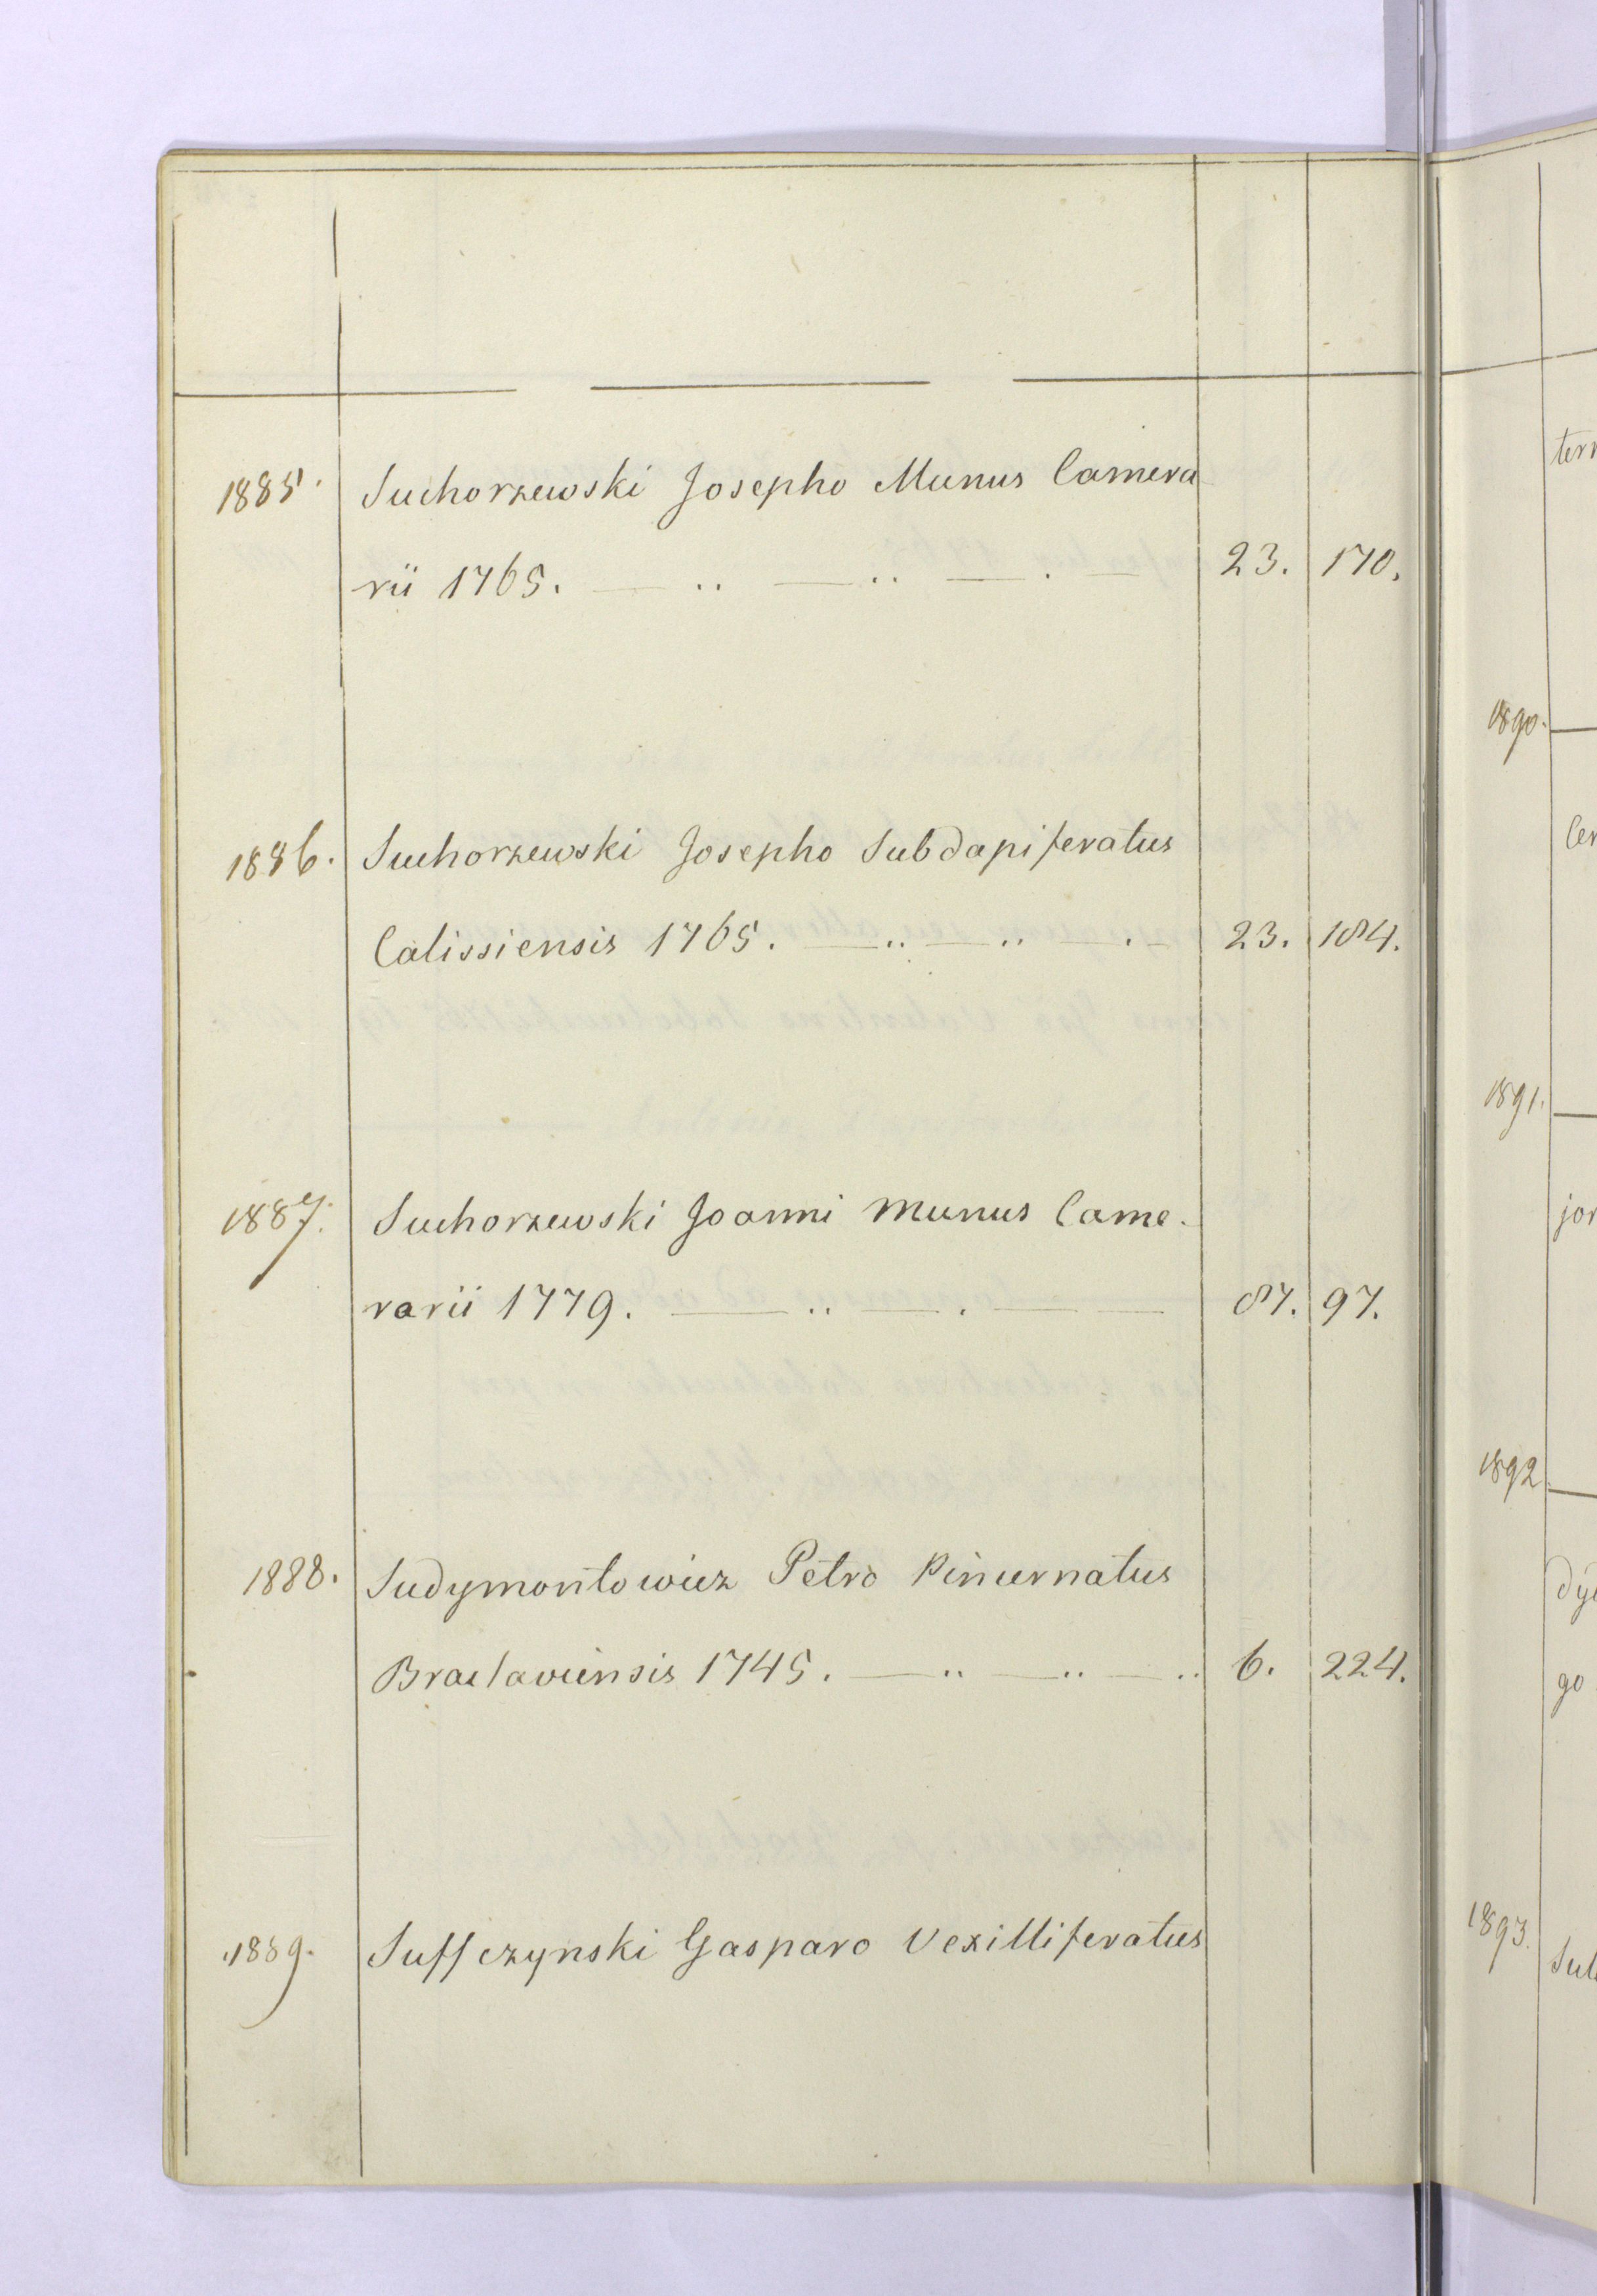 1885. Suchorzewski Josepho Munus Camera
rii 1765. — .. — .. — . — 23. 170.
1886. Suchorzewski Josepho Subdapiferatus
Calissiensis 1765. — .. — .. — . — 23. 184.
1887. Suchorzewski Joanni Munus Came-
rarii 1779. — .. — . — — 87. 97.
1888. Sudymontowicz Petro Pincernatus
Braclaviensis 1745. — .. — .. — .. 6. 224.
1889. Suffczynski Gasparo Vexilliferatus
1890.
1891.
1892
1893.